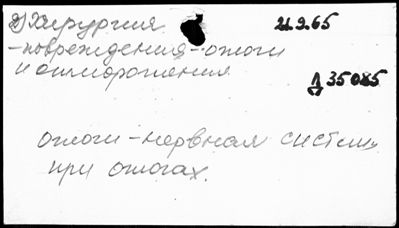 2) Хирургия 21.9.65
-повреждения-ожоги
и отморожения
Д 35085
ожоги-нервная систем.
при ожогах.